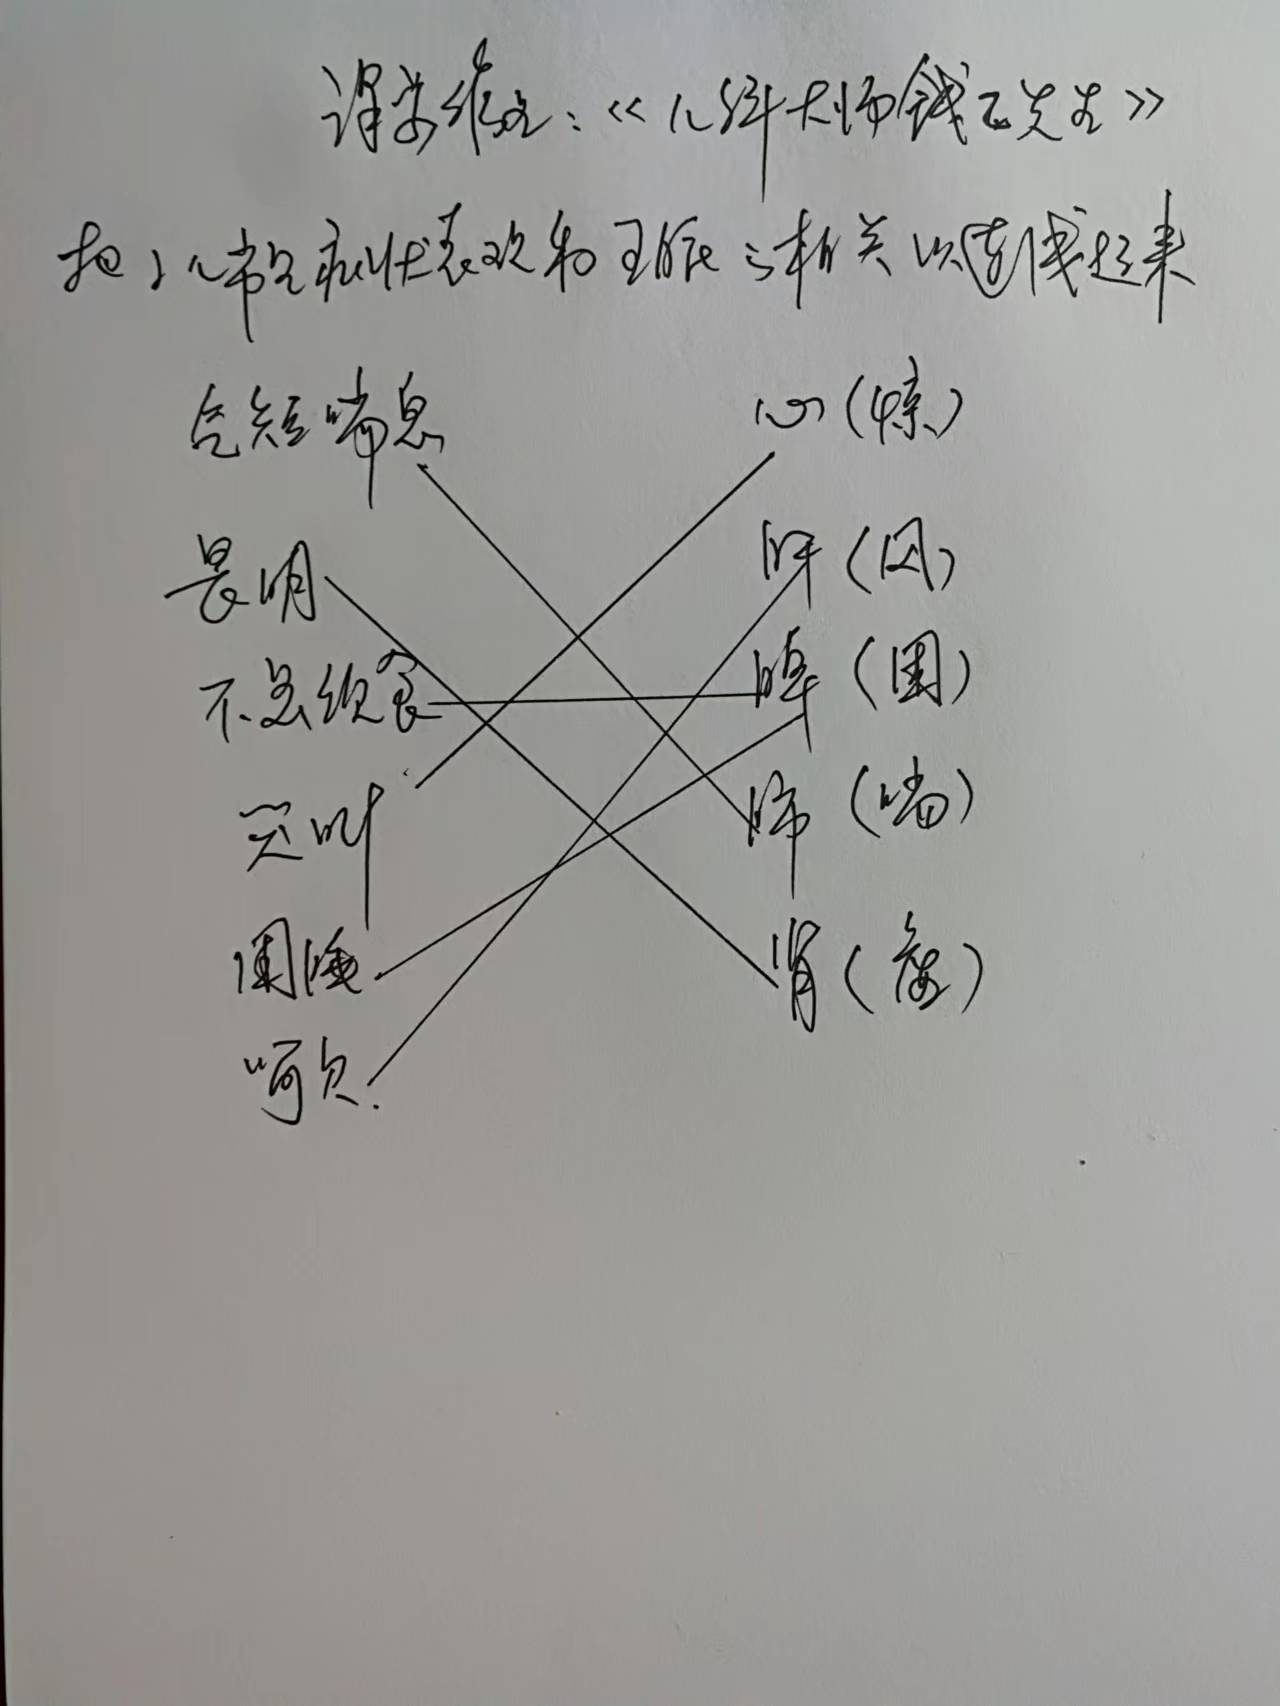 课堂作业:《儿科大师钱乙先生》
把小儿常见症状表现和五脏之相关以连线起来
气短喘息 心(惊)
畏明 肝(风)
不思饮食 脾(困)
哭叫 肺(喘)
困睡 肾(虚)
呵欠.